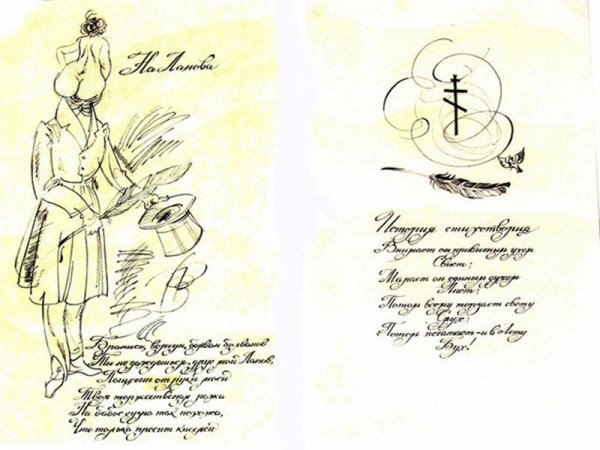 На Ланова
Бранись, ворчун, болван болванов
Ты не дождешься, друг мой Ланов,
Пощечин от руки моей
Твоя торжественая рожа
На бабье гузно так похожа,
Что только просит киселей
История стихотворца
Внимает он привычным ухом
Свист;
Марает он единым духом
Лист;
Потом всему терзает свету
Слух;
Потом печатает-и в Лету
Бух!